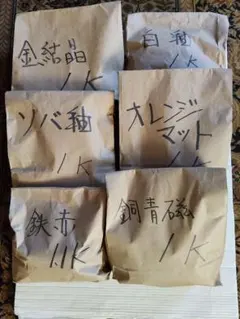 金結晶
1K
白釉
1K
ソバ釉
1K
オレンジ
マット
1K
鉄赤
1.1K
銅青磁
1K